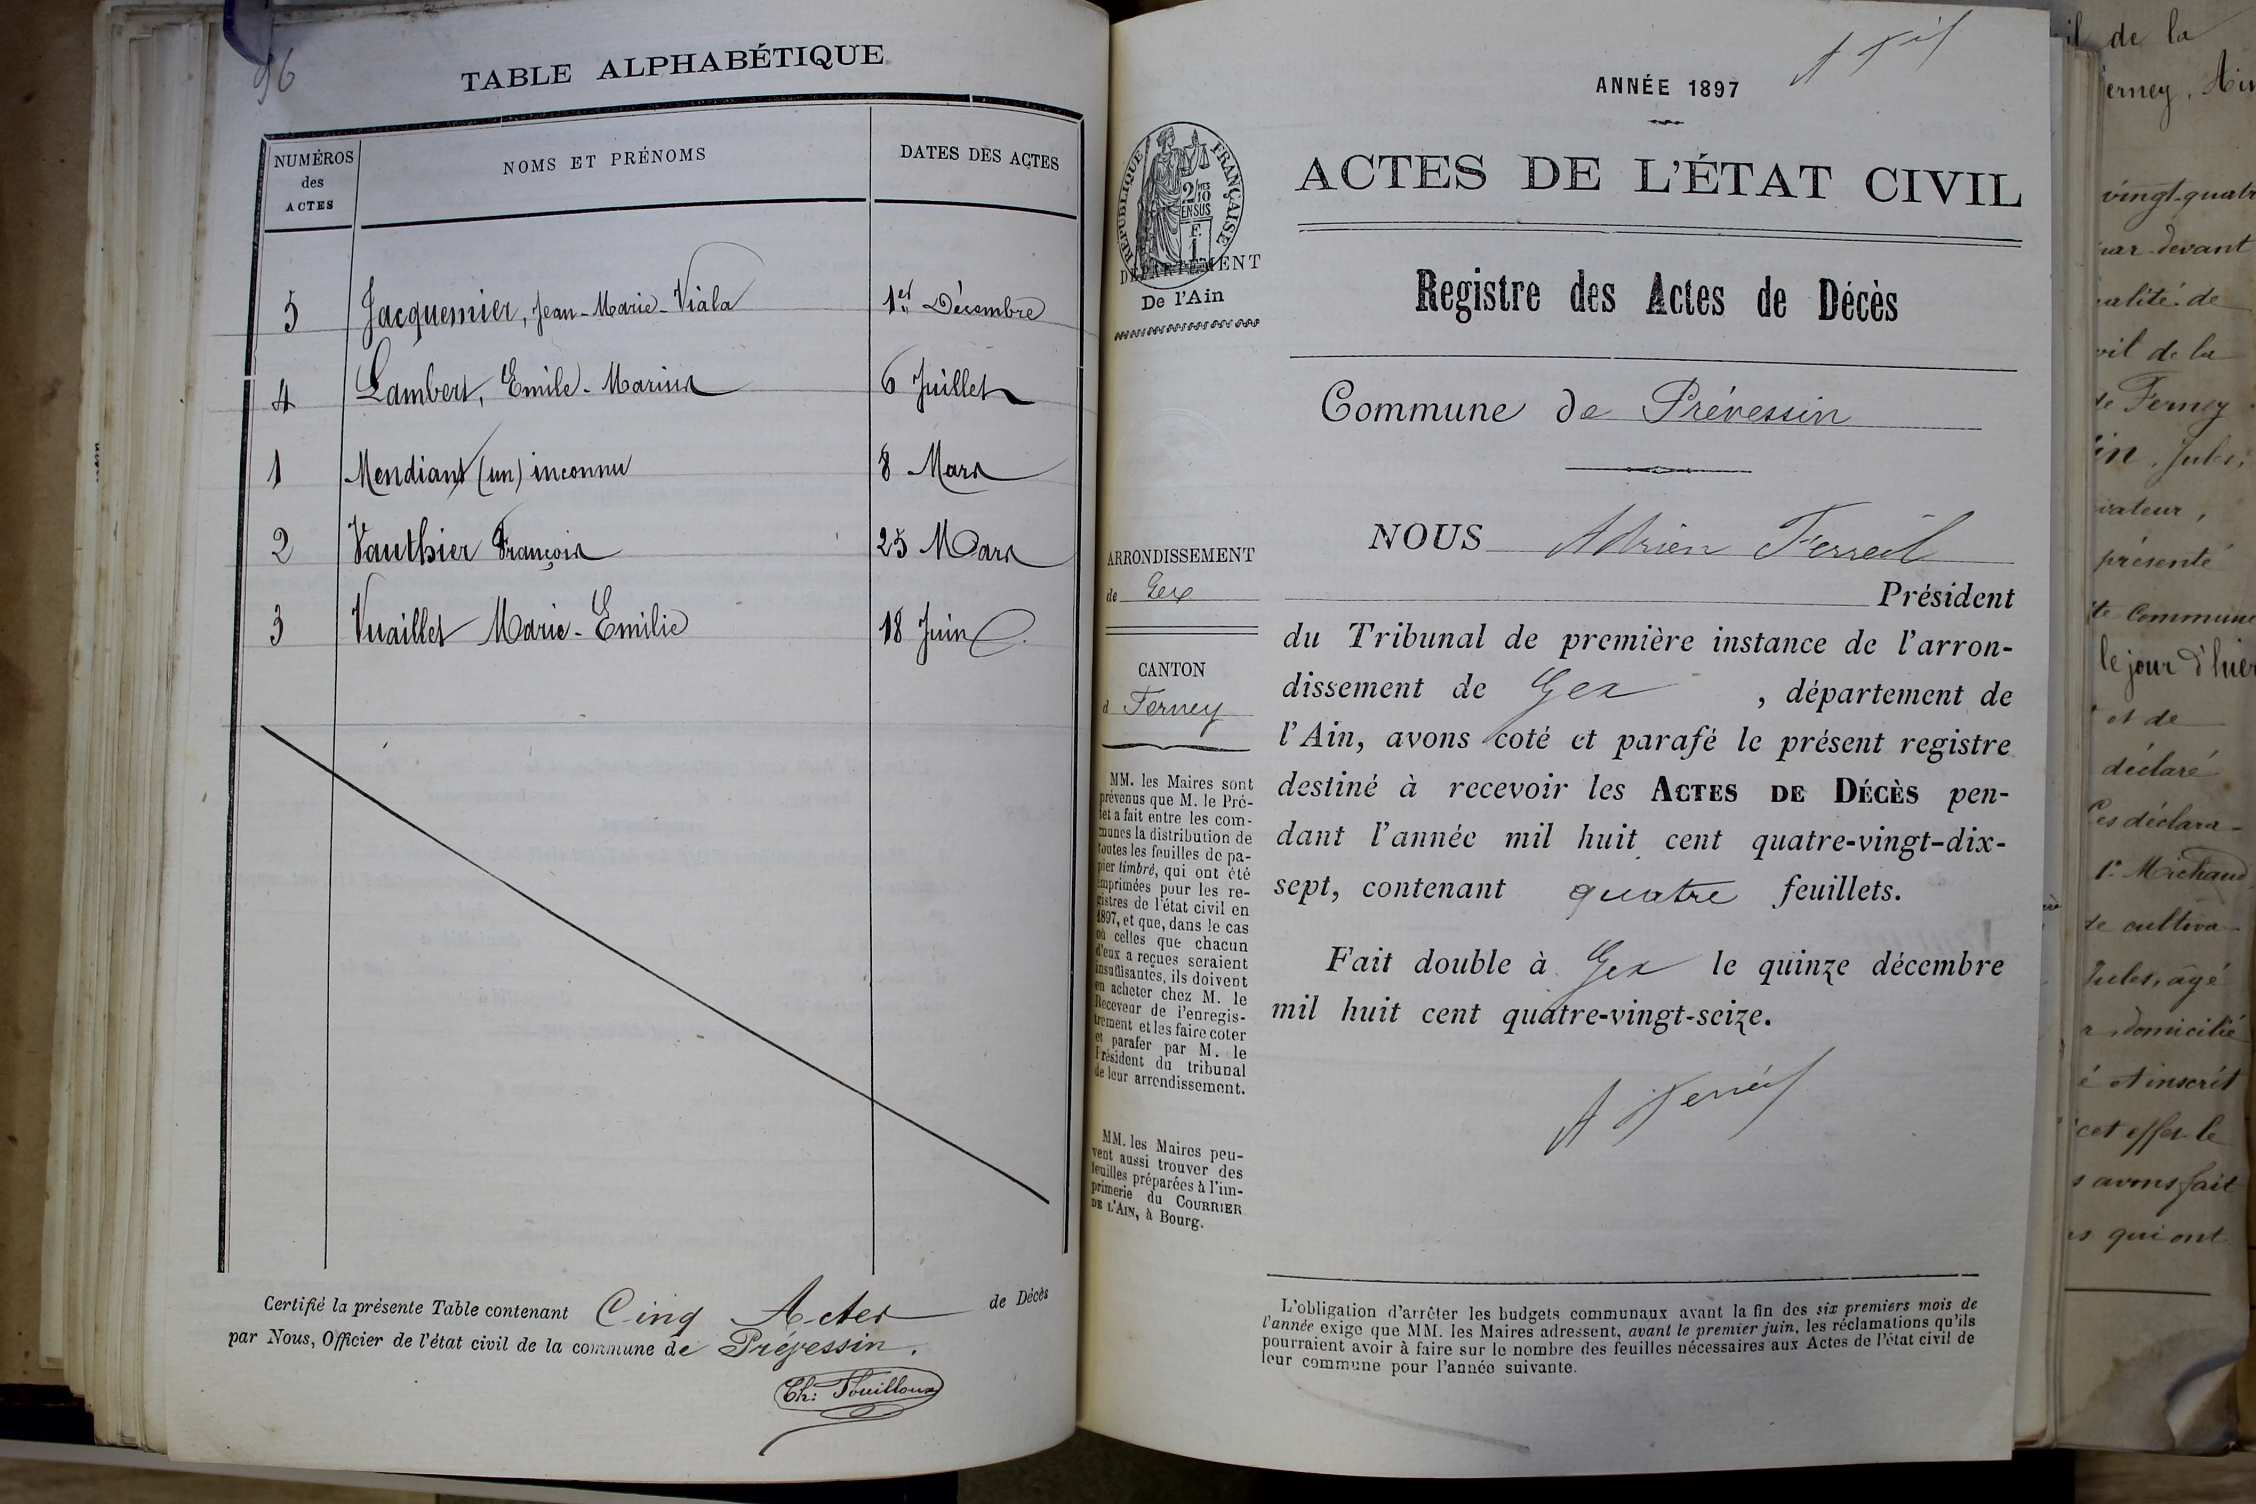 96
TABLE ALPHABÉTIQUE
NUMÉROS
des
ACTES
NOMS ET PRÉNOMS
DATES DES ACTES
5 Jacquemier, Jean-Marie-Viala 1er Décembre
4 Lambert, Emile-Marius 6 Juillet
1 Mendiant (un) inconnu 8 Mars
2 Vauthier François 25 Mars
3 Vuaillet Marie-Emilie 18 Juin
Certifié la présente Table contenant Cinq Actes de Décès
par Nous, Officier de l'état civil de la commune de Prévessin.
Th: Fouilloux
ANNÉE 1897
ACTES DE L'ÉTAT CIVIL
RÉPUBLIQUE FRANÇAISE
2/10
EN SUS
F.
1
DÉPARTEMENT
De l'Ain
Registre des Actes de Décès
Commune de Prévessin
ARRONDISSEMENT
de Gex
CANTON
d Ferney
MM. les Maires sont
prévenus que M. le Pré-
fet a fait entre les com-
munes la distribution de
toutes les feuilles de pa-
pier timbré, qui ont été
imprimées pour les re-
gistres de l'état civil en
1897, et que, dans le cas
où celles que chacun
d'eux a reçues seraient
insuffisantes, ils doivent
en acheter chez M. le
Receveur de l'enregis-
trement et les faire coter
et parafer par M. le
Président du tribunal
de leur arrondissement.
MM. les Maires peu-
vent aussi trouver des
feuilles préparées à l'im-
primerie du COURRIER
DE L'AIN, à Bourg.
NOUS Adrien Ferreil
Président
du Tribunal de première instance de l'arron-
dissement de Gex , département de
l'Ain, avons coté et parafé le présent registre
destiné à recevoir les ACTES DE DÉCÈS pen-
dant l'année mil huit cent quatre-vingt-dix-
sept, contenant quatre feuillets.
Fait double à Gex le quinze décembre
mil huit cent quatre-vingt-seize.
L'obligation d'arrêter les budgets communaux avant la fin des six premiers mois de
l'année exige que MM. les Maires adressent, avant le premier juin, les réclamations qu'ils
pourraient avoir à faire sur le nombre des feuilles nécessaires aux Actes de l'état civil de
leur commune pour l'année suivante.
de la
vingt-quatr
devant
de
de la
de Ferney
Jules,
présenté
commune
le jour d'hier
et de
déclaré
Ces déclara-
Michaud
de cultiva-
Jules, âgé
domicilié
et inscrit
cet effet le
avons fait
qui ont